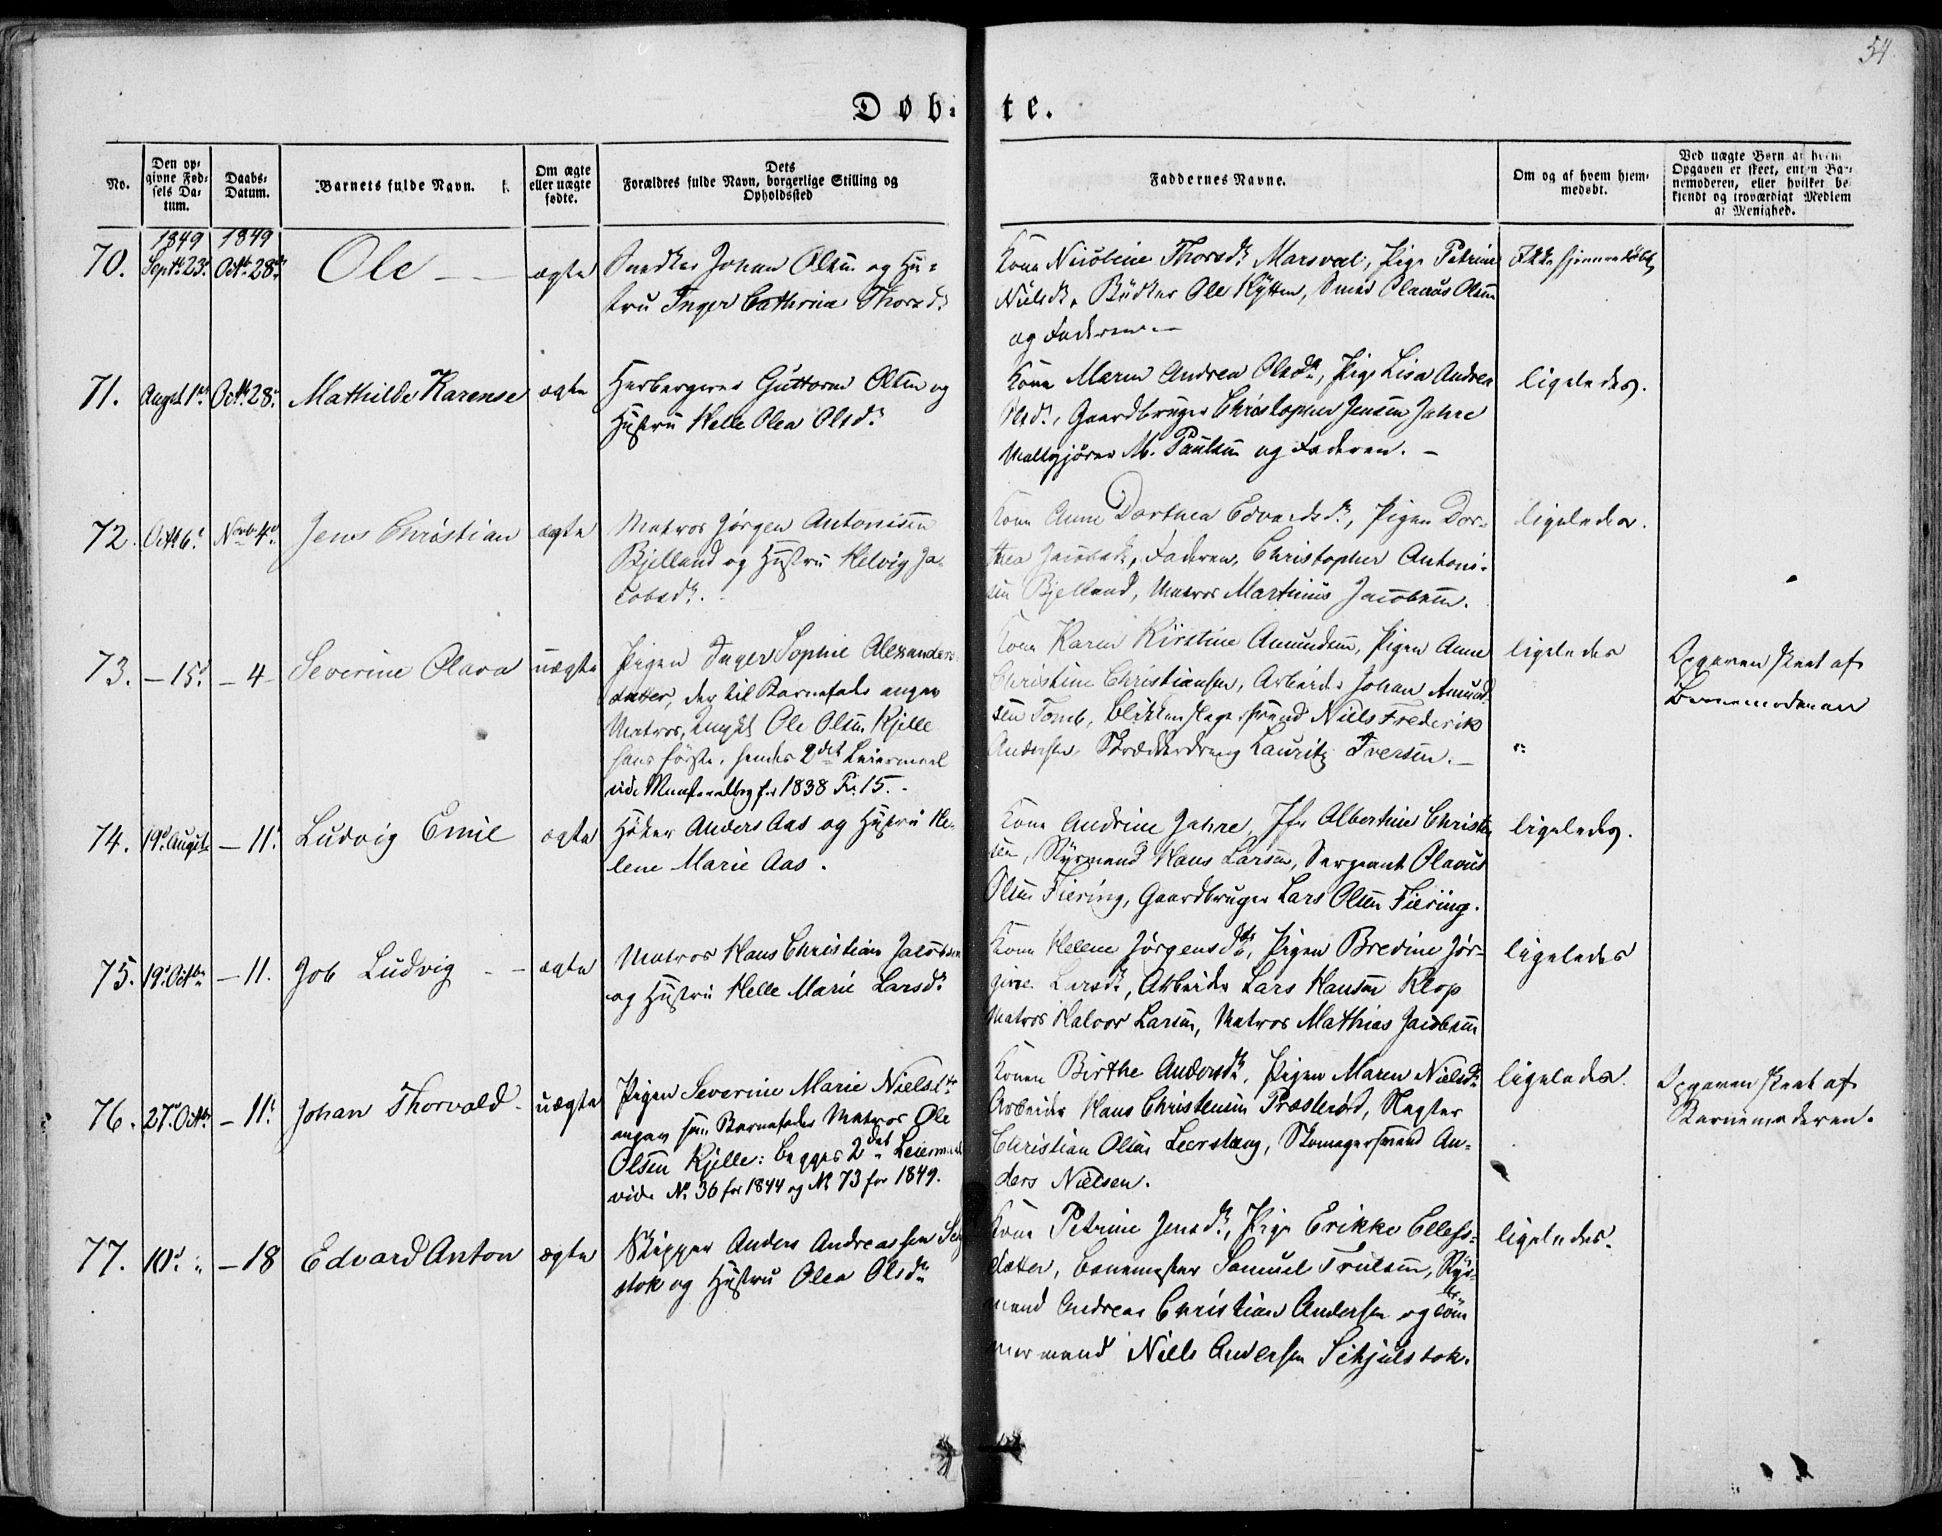 54.
Døb-te.
No.
Den op-
givne Fød-
sels Da-
tum.
Daabs-
Datum.
Barnets fulde Navn.
Om ægte
eller uægte
fødte.
Dets
Forældres fulde Navn, borgerlige Stilling og
Opholdssted
Faddernes Navne.
Om og af hvem hjem-
medøbt.
Ved uægte Børn af hvem
Opgaven er skeet, enten Bar-
nemoderen, eller hvilket be-
kjendt og troværdigt Medlem
af Menighed.
1849 1849
70. Septb. 23. Octb. 28. Ole ægte
Snedker Johan Olsen og Hu-
stru Inger Cathrina Thorsd.
Kone Nicoline Thorsd. Marsvel, Pige Petrine
Nielsd., Bødker Ole Kytten, Smed Olaus Olsen
og Faderen.
Ikke hjemmedøbt
71. Augst. 1. Octb. 28. Mathilde Karense ægte
Herbergerer Guttorm Olsen og
Hustru Helle Olea Olsd.
Kone Maren Andrea Olsd., Pige Lisa Andrea
Olsd., Gaardbruger Christopher Jensen Jahre
Maltgjører M. Paulsen og Faderen.
ligeledes.
72. Octb 6. Novbr 4. Jens Christian ægte
Matros Jørgen Antonisen
Bjelland og Hustru Helvig Ja-
cobsd.
Kone Anne Dorthea Edvardsd., Pigen Dor-
thea Jacobsd., Faderen, Christopher Antoni-
sen Bjelland, Matros Martinius Jacobsen.
ligeledes.
73. – 15. – 4 Severine Olava uægte
Pigen Inger Sophie Alexanders-
datter, der til Barnefader angav
Matros, Ole Olsen Kjelle
hans første, hendes 2det Leiermaal
vide for 1838 15.
Kone Karen Kirstine Amundsen, Pigen Anne
Christine Christiansen, Arbeider Johan Amund-
sen Tomb, Blikkenslagersvend Niels Frederik
Andersen Skrædderdreng Lauritz Iversen.
ligeledes
Opgaven skeet af
Barnemoderen
74. 19. August – 11. Ludvig Emil ægte
Høker Anders Aas og Hustru He-
lene Marie Aas.
Kone Andrine Jahre, Jfr Albertine Christen-
sen, Styrmand Hans Larsen, Sergeant Olavus
Olsen Fiering, Gaardbruger Lars Olsen Fiering.
ligeledes.
75. 19. Octbr – 11. Job Ludvig ægte
Matros Hans Christian Jacobsen
og Hustru Helle Marie Larsd.
Kone Helene Jørgensd., Pigen Bredine Jør-
gine Larsd., Arbeider Lars Hansen Klop
Matros Halvor Larsen, Matros Mathias Jacobsen
ligeledes
76. 27. Octbr – 11. Johan Thorvald uægte
Pigen Severine Marie Nielsdtr
angav som Barnefader Matros Ole
Olsen Kjelle: begges 2det Leiermaal
vide No. 36 for 1844 og No 73 for 1849.
Konen Birthe Andersd., Pigen Maren Nielsd.
Arbeider Hans Christensen Præsterød, Slagter
Christian Olsen Leerstang, Skomagersvend An-
ders Nielsen.
ligeledes.
Opgaven skeet af
Barnemoderen.
77. 10. " – 18 Edvard Anton ægte
Skipper Anders Andreassen
stok og Hustru Olea Olsd.
Kone Petrine Jensd., Pige Erikke Ellefs-
datter, Samuel Trulsen, Styr-
mand Andreas Christian Andersen og Töm-
mermand Niels Andersen Sikjulstok.
ligeledes.